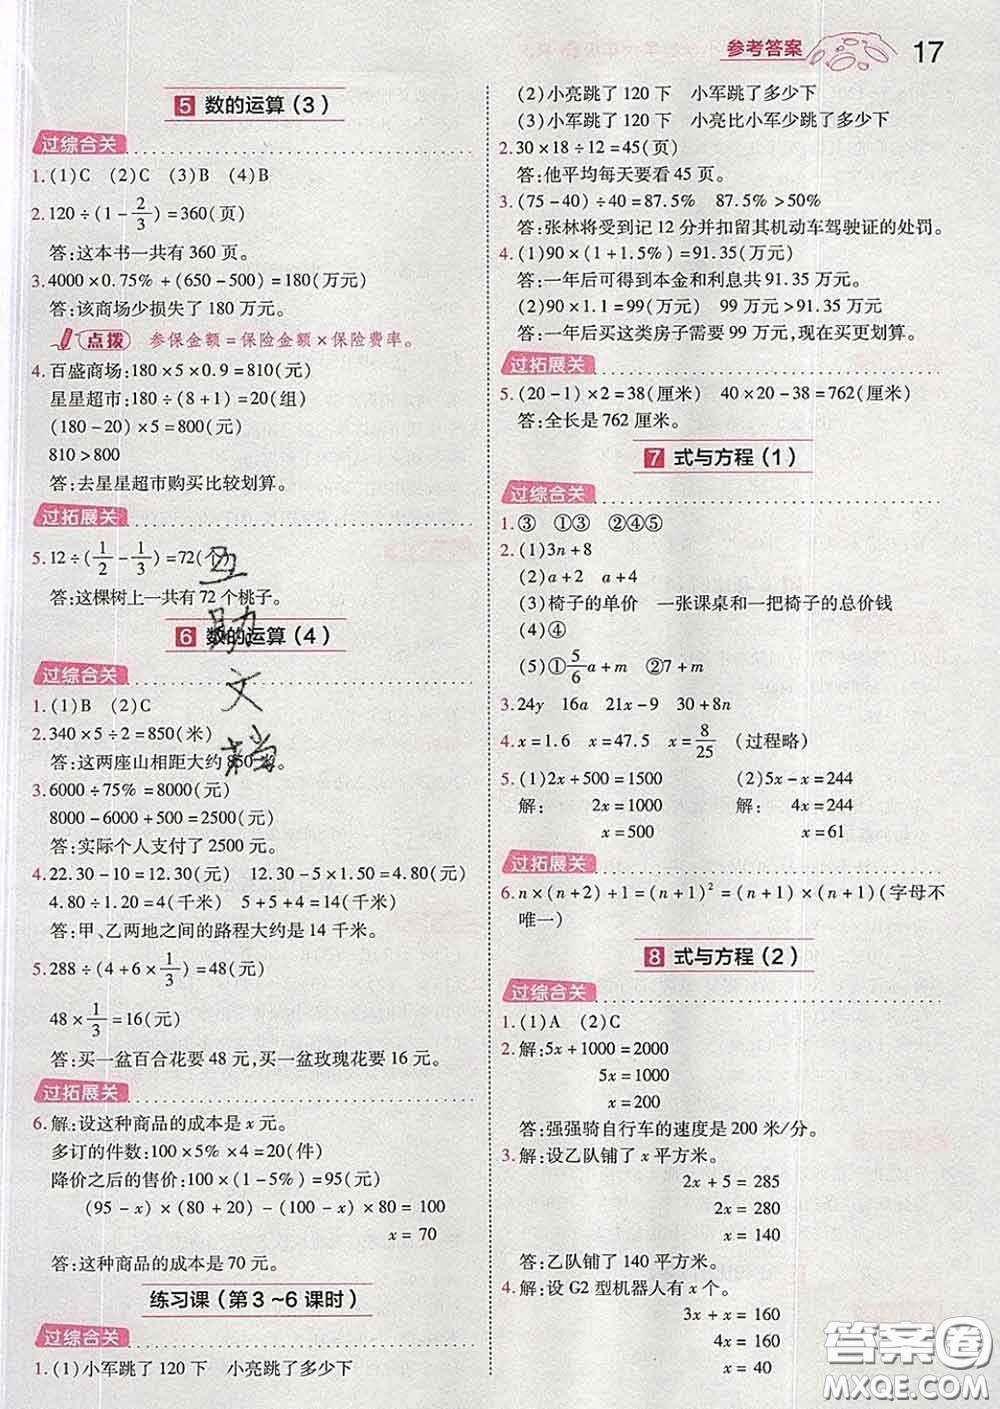 参考答案 17
5 数的运算(3)
过综合关
1.(1)C (2)C (3)B (4)B
2.120÷(1-2/3)=360(页)
答:这本书一共有 360 页。
3.4000×0.75%+(650-500)=180(万元)
答:该商场少损失了 180 万元。
点拨 参保金额=保险金额×保险费率。
4.百盛商场:180×5×0.9=810(元)
星星超市:180÷(8+1)=20(组)
(180-20)×5=800(元)
810>800
答:去星星超市购买比较划算。
过拓展关
5.12÷(1/2-1/3)=72(个)
答:这棵树上一共有 72 个桃子。
6 数的运算(4)
过综合关
1.(1)B (2)C
2.340×5÷2=850(米)
答:这两座山相距大约 850 米。
3.6000÷75%=8000(元)
8000-6000+500=2500(元)
答:实际个人支付了 2500 元。
4.22.30-10=12.30(元) 12.30-5×1.50=4.80(元)
4.80÷1.20=4(千米) 5+5+4=14(千米)
答:甲、乙两地之间的路程大约是 14 千米。
5.288÷(4+6×1/3)=48(元)
48×1/3=16(元)
答:买一盆百合花要 48 元,买一盆玫瑰花要 16 元。
过拓展关
6.解:设这种商品的成本是 x 元。
多订的件数:100×5%×4=20(件)
降价之后的售价:100×(1-5%)=95(元)
(95-x)×(80+20)-(100-x)×80=100
x=70
答:这种商品的成本是 70 元。
练习课(第 3~6 课时)
过综合关
1.(1)小军跳了 120 下 小亮跳了多少下
(2)小亮跳了 120 下 小军跳了多少下
(3)小军跳了 120 下 小亮比小军少跳了多少下
2.30×18÷12=45(页)
答:他平均每天要看 45 页。
3.(75-40)÷40=87.5% 87.5%>50%
答:张林将受到记 12 分并扣留其机动车驾驶证的处罚。
4.(1)90×(1+1.5%)=91.35(万元)
答:一年后可得到本金和利息共 91.35 万元。
(2)90×1.1=99(万元) 99 万元>91.35 万元
答:一年后买这类房子需要 99 万元,现在买更划算。
过拓展关
5.(20-1)×2=38(厘米) 40×20-38=762(厘米)
答:全长是 762 厘米。
7 式与方程(1)
过综合关
1.③ ①③ ②④⑤
2.(1)3n+8
(2)a+2 a+4
(3)椅子的单价 一张课桌和一把椅子的总价钱
(4)④
(5)①5/6a+m ②7+m
3.24y 16a 21x-9 30+8n
4.x=1.6 x=47.5 x=8/25 (过程略)
5.(1)2x+500=1500 (2)5x-x=244
解: 2x=1000 解: 4x=244
x=500 x=61
过拓展关
6.n×(n+2)+1=(n+1)²=(n+1)×(n+1)(字母不
唯一)
8 式与方程(2)
过综合关
1.(1)A (2)C
2.解:5x+1000=2000
5x=1000
x=200
答:强强骑自行车的速度是 200 米/分。
3.解:设乙队铺了 x 平方米。
2x+5=285
2x=280
x=140
答:乙队铺了 140 平方米。
4.解:设 G2 型机器人有 x 个。
3x+x=160
4x=160
x=40
互
助
文
档
答案圈
MXQE.COM